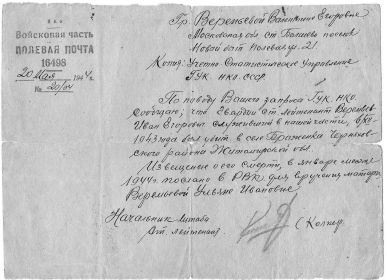 НКО
Войсковая часть
ПОЛЕВАЯ ПОЧТА
16498
20 Мая 1944 г.
№ 20/04
Гр. Веретьевой Валентине Егоровне
Московская обл ст. поселок
Новой 21.
Копия: Учетно-Статистическое Управление
ГУК НКО СССР
По поводу Вашего запроса ГУК НКО
Сообщаю, что Гвардии ст. лейтенант
Иван Егорович служивший в нашей части,
1943 года был убит в селе Браженка
района Житомирской обл.
Извещение о его смерти, в январе месяце
1944 г. послано в РВК для вручения матери
Ульяне Ивановне
Начальник штаба
лейтенант